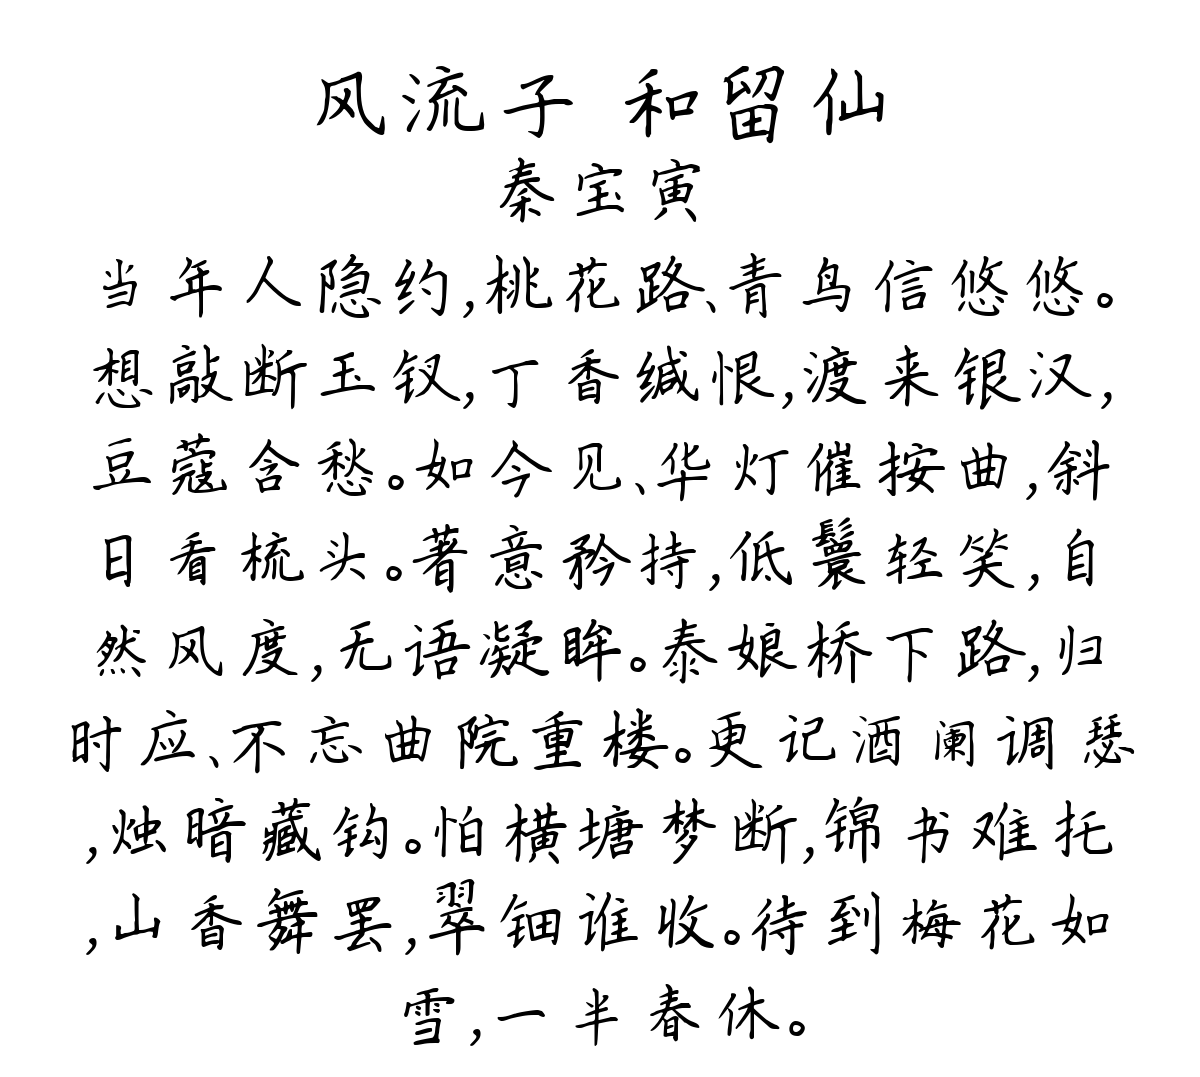 风流子 和留仙
秦宝寅
当年人隐约,桃花路、青鸟信悠悠。
想敲断玉钗,丁香缄恨,渡来银汉,
豆蔻含愁。如今见、华灯催按曲,斜
日看梳头。著意矜持,低鬟轻笑,自
然风度,无语凝眸。泰娘桥下路,归
时应、不忘曲院重楼。更记酒阑调瑟
,烛暗藏钩。怕横塘梦断,锦书难托
,山香舞罢,翠钿谁收。待到梅花如
雪,一半春休。